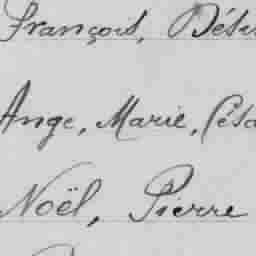 François, Dési
Ange, Marie, Césa
Noël, Pierre